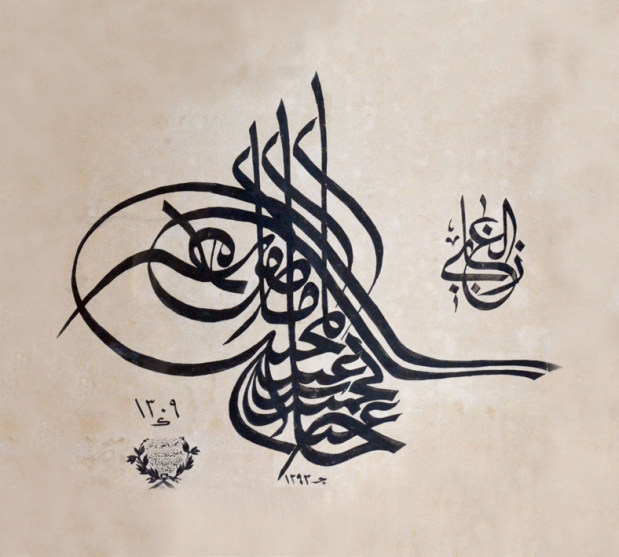 عبد الحميد خان بن عبد المجيد المظفر دائما
الغازي
١٣٠٩
١٢٩٣